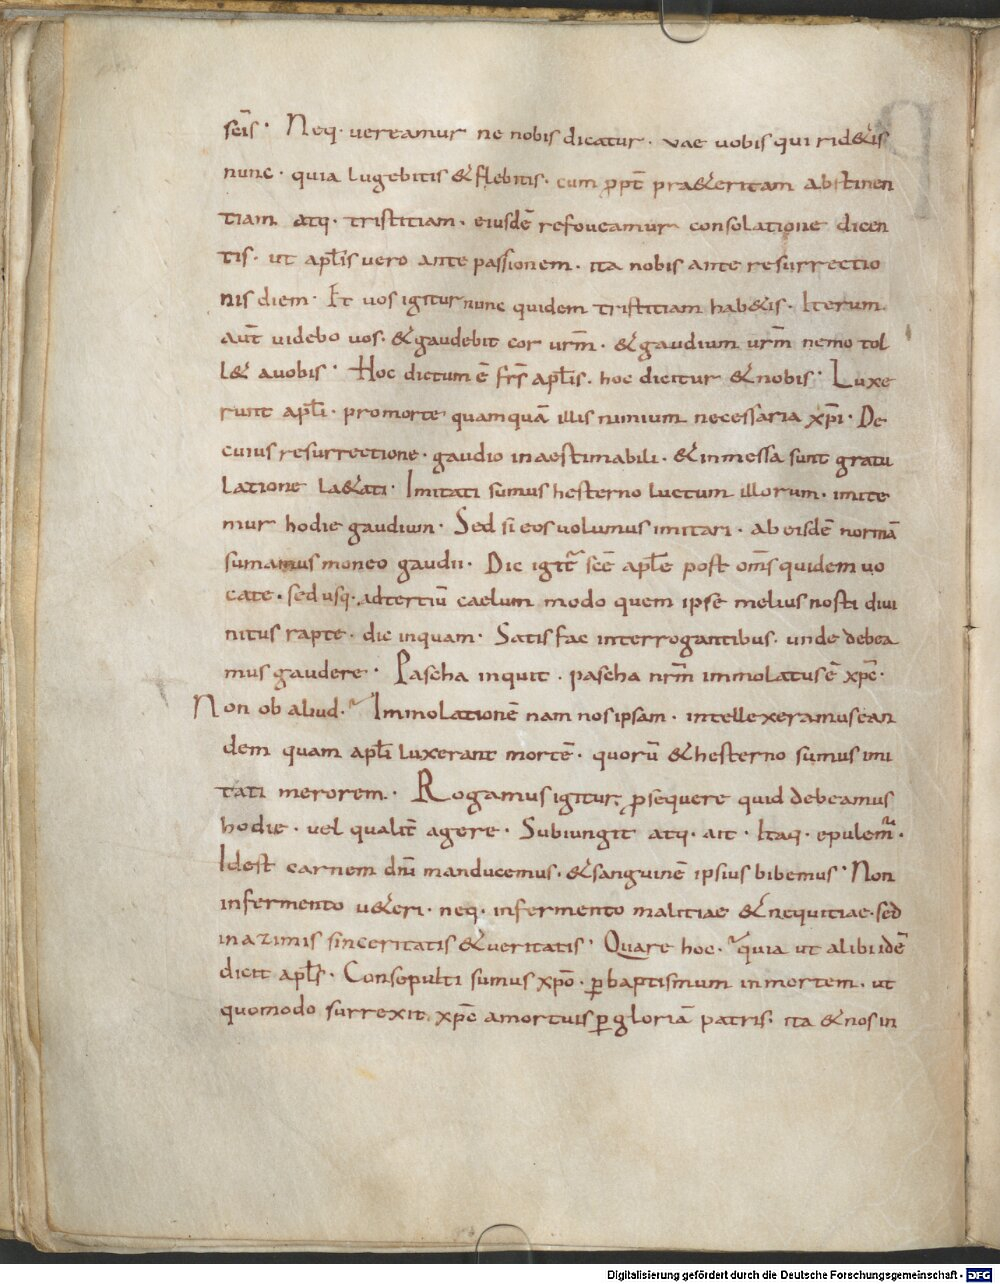 sc̄is· Neq· vereamur ne nobis dicatur· vae uobis qui rid&is
nunc· quia lugebitis & flebitis· cum ꝓpt̄ pra&eritam abstinen
tiam atq· tristitiam· eiusdē refoveamur consolatione dicen
tis· ut apl̄is vero ante passionem· ita nobis ante resurrectio
nis diem· Et vos igitur nunc quidem tristitiam hab&is· Iterum
aut̄ videbo vos· & gaudebit cor urm̄· & gaudium urm̄ nemo tol
l& avobis· Hoc dictum ē frs̄ apl̄is· hoc dicitur & nobis· Luxe
runt apl̄i· promorte quamquā illis nimium necessaria xp̄i· De
cuius resurrectione· gaudio inaestimabili· & inmessa sunt gratu
latione la&ati· Imitati sumus hesterno luctum illorum· imite
mur hodie gaudium· Sed si eos volumus imitari· ab eisdē normā
sumamus moneo gaudii· Dic igit̄ sc̄e apl̄e post om̄s quidem uo
cate· sed usq· adtertiū caelum modo quem ipse melius nosti divi
nitus rapte· dic inquam· Satis fac interrogantibus· unde debea
mus gaudere· Pascha inquit· pascha nrm̄ immolatus ē xp̄c·
Non ob aliud· Immolationē nam nos ipsam· intellexeramus ean
dem quam apl̄i luxerant mortē· quorū & hesterno sumus imi
tati merorem· Rogamus igitur ꝓsequere quid debeamus
hodie· vel qualit̄ agere· Subiungit atq· ait· Itaq· epulem̄·
Idest carnem dn̄i manducemus· & sanguinē ipsius bibemus· Non
infermento u&eri· neq· infermento malitiae & nequitiae· sed
in azimis sinceritatis & veritatis· Quare hoc· quia ut alibi idē
dicit apl̄s· Consepulti sumus xp̄o· ꝑ baptismum in mortem· ut
quomodo surrexit xp̄c amortuis ꝑ gloriā patris· ita & nos in
Digitalisierung gefördert durch die Deutsche Forschungsgemeinschaft · DFG